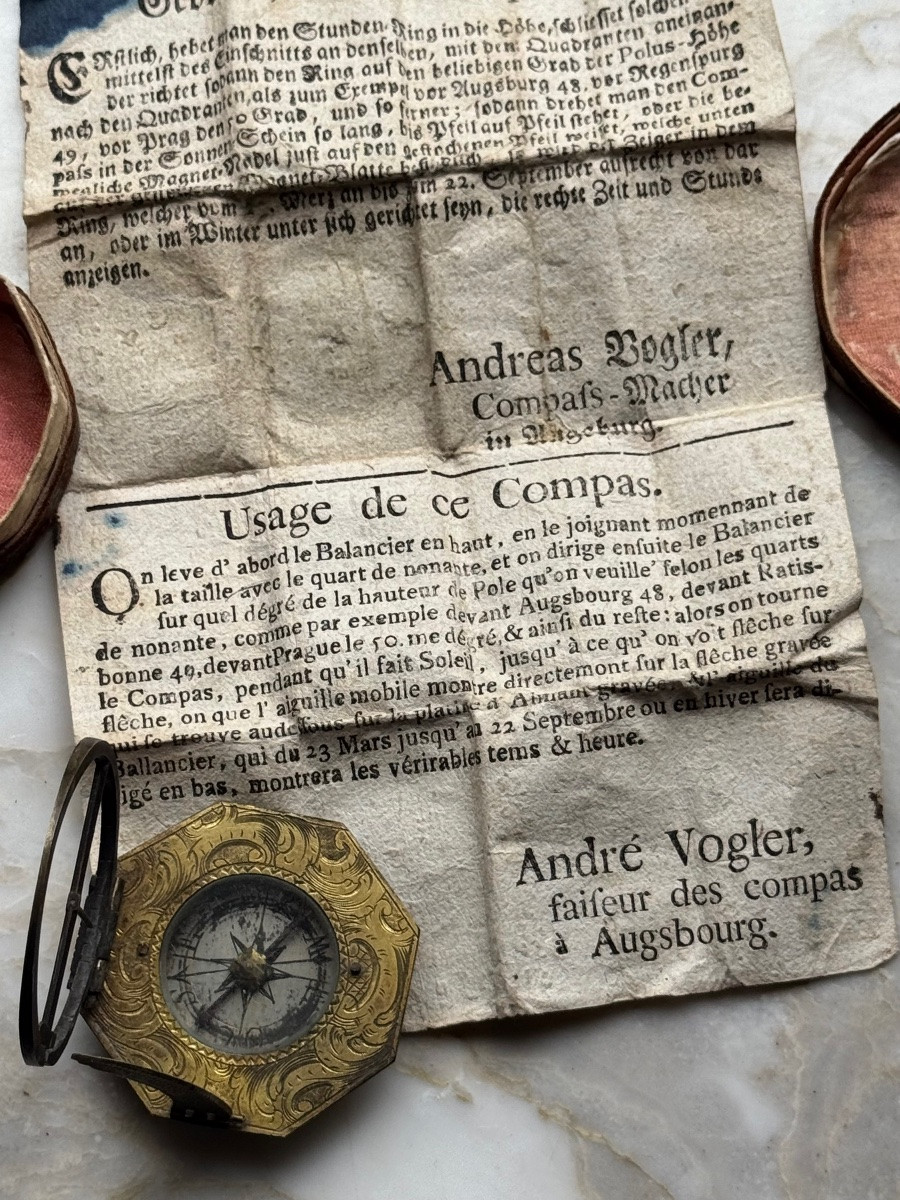 ERstlich, hebet man den Stunden-Ring in die Höhe, schliesset solchen
mittelst des Einschnitts an denselben, mit dem Quadranten aneinan-
der richtet sodann den Ring auf den beliebigen Grad der Polus-Höhe
nach den Quadranten, als zum Exempel vor Augsburg 48. vor Regenspurg
49, vor Prag den 50 Grad, und so ferner; sodann drehet man den Com-
pass in der Sonnen Schein so lang, bis Pfeil auf Pfeil stehet, oder die be-
wegliche Magnet-Nadel just auf den gestochenen Pfeil weiset, welche unten
Magnet-Blatte so wird der Zeiger in dem
Ring, welcher vom Merz an bis im 22. September aufrecht von dar
an, oder im Winter unter sich gerichtet seyn, die rechte Zeit und Stunde
anzeigen.
Andreas Vogler,
Compaſs-Macher
in Augsburg.
Usage de ce Compas.
On leve d' abord le Balancier en haut, en le joignant momennant de
la taille avec le quart de nonante, et on dirige enſuite le Balancier
ſur quel dégré de la hauteur de Pole qu'on veuille' ſelon les quarts
de nonante, comme par exemple devant Augsbourg 48, devant Ratis-
bonne 49, devant Prague le 50. me dégré, & ainſi du reſte: alors on tourne
le Compas, pendant qu' il fait Soleil, jusqu' à ce qu' on voit flêche ſur
flêche, on que l' aiguille mobile montre directemont ſur la flêche gravée
qui ſe trouve audeſſous ſur la platine d' Aimant gravée, & l' aiguille du
Ballancier, qui du 23 Mars jusqu' au 22 Septembre ou en hiver ſera di-
rigé en bas, montrera les vérirables tems & heure.
André Vogler,
faiſeur des compas
à Augsbourg.